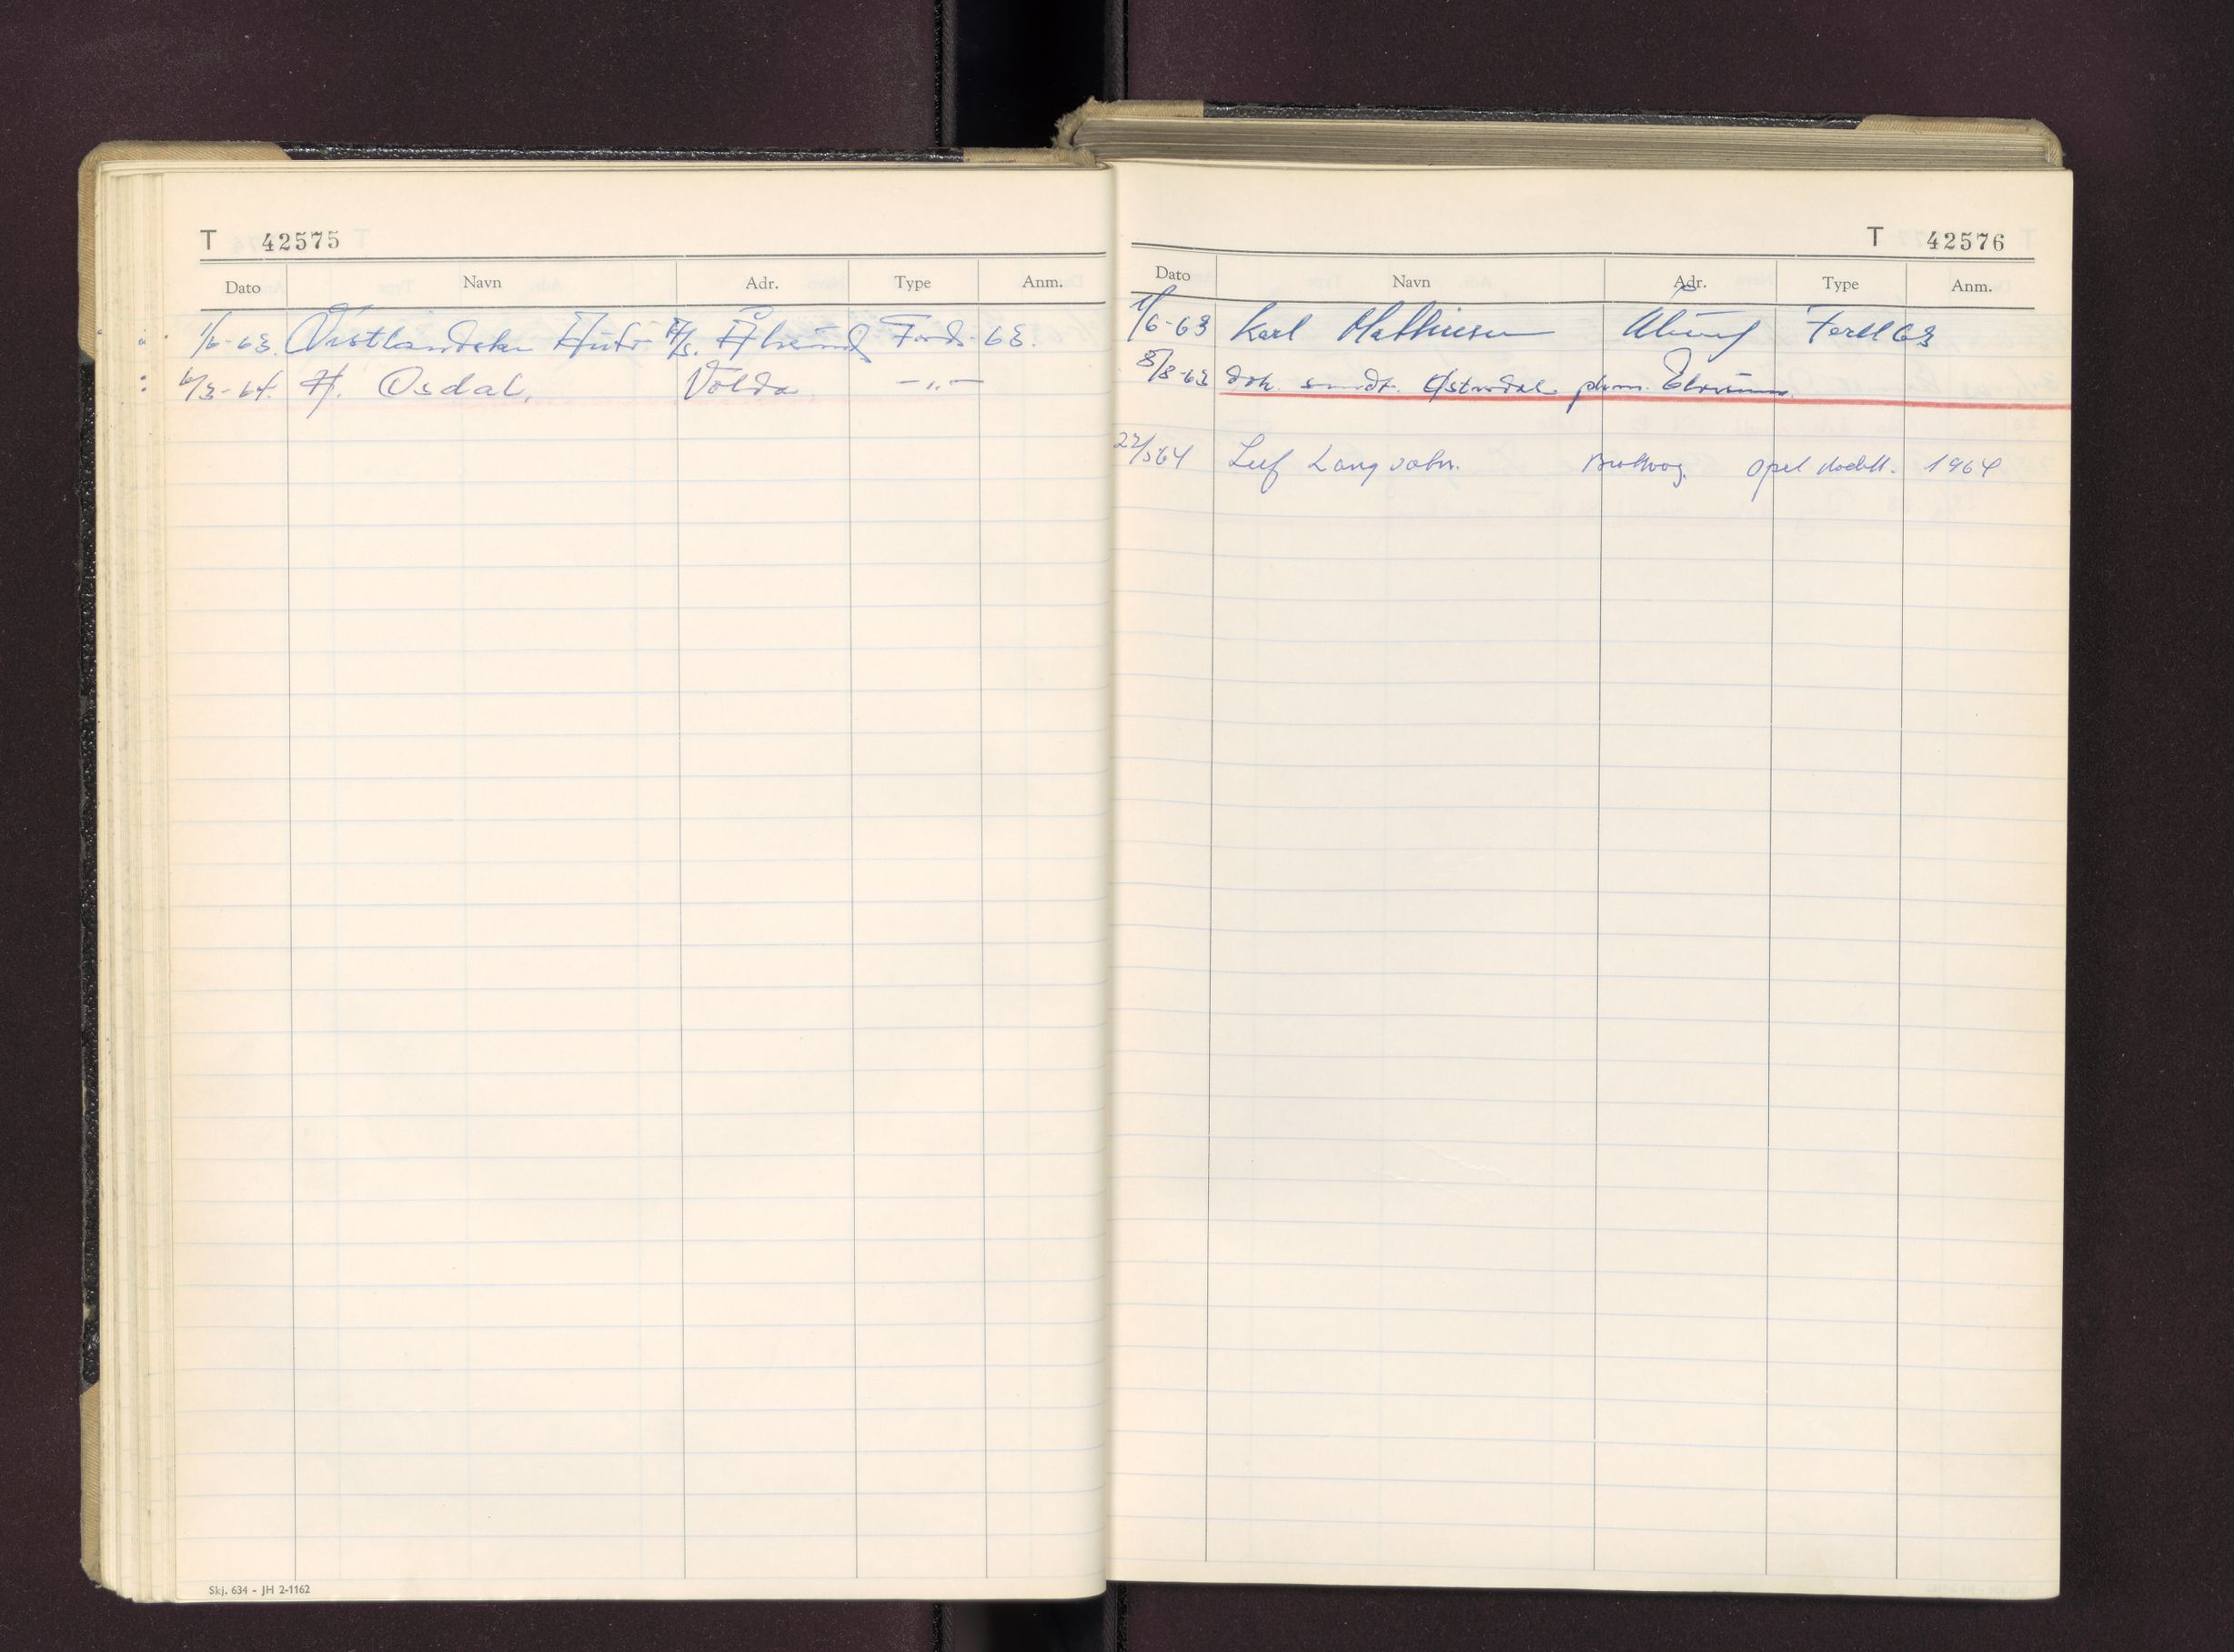 T 42575
Dato Navn Adr. Type Anm.
1/6-63. Vestlandske Auto A/s. Ålesund Ford. 63.
6/3-64. H. Osdal, Volda —"—
Skj. 634 - JH 2-1162
T 42576
Dato Navn Adr. Type Anm.
1/6-63 Karl Mathiesen Ålesund Ford 63
8/8-63 dok. sendt. Østerdal pkm. Elverum.
22/564 Leif Langvatn. Brattvåg. Opel Kadett. 1964